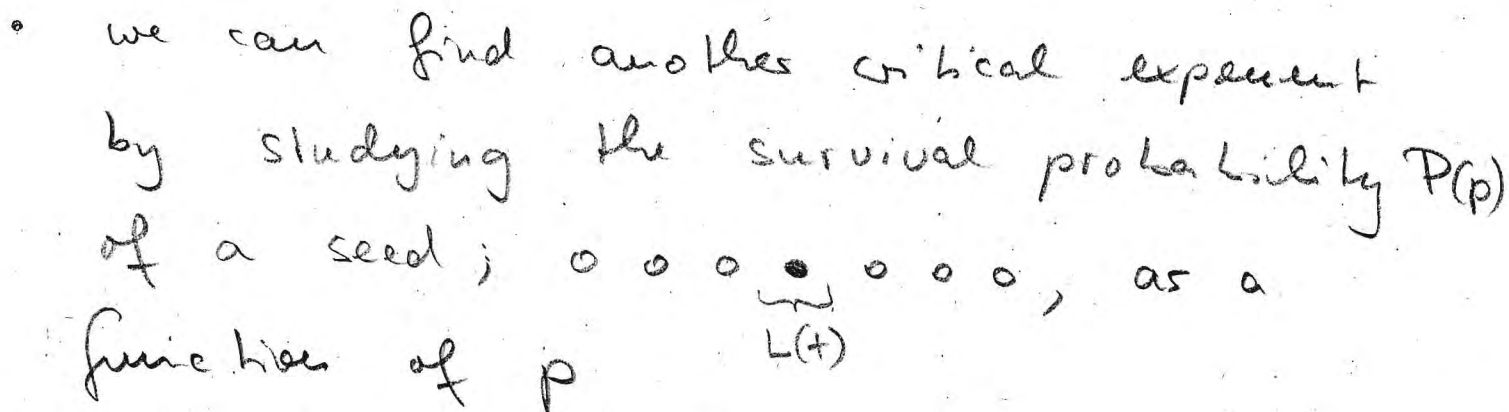 • we can find another critical exponent
by studying the survival probability P(p)
of a seed; o o o • o o o, as a
L(t)
function of p